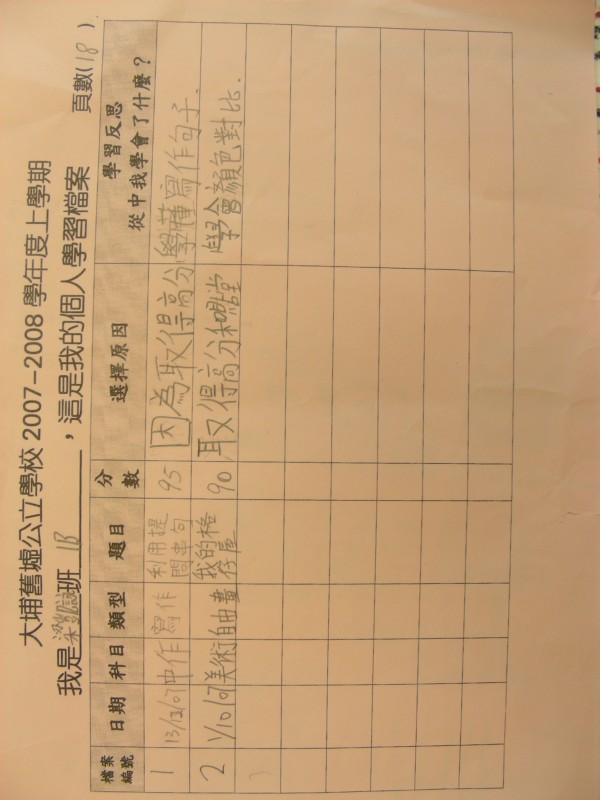 大埔舊墟公立學校 2007-2008 學年度上學期
我是梁 班 1B ，這是我的個人學習檔案 頁數(18)
檔案編號 日期 科目 類型 題目 分數 選擇原因 學習反思 從中我學會了什麼？
1 13/12/07 中作 寫作 利用提問串句 95 因為取得高分 學懂寫作句子.
2 1/10/07 美術 自由畫 我的格仔屋 90 取得高分和 堂 學會顏色對比.